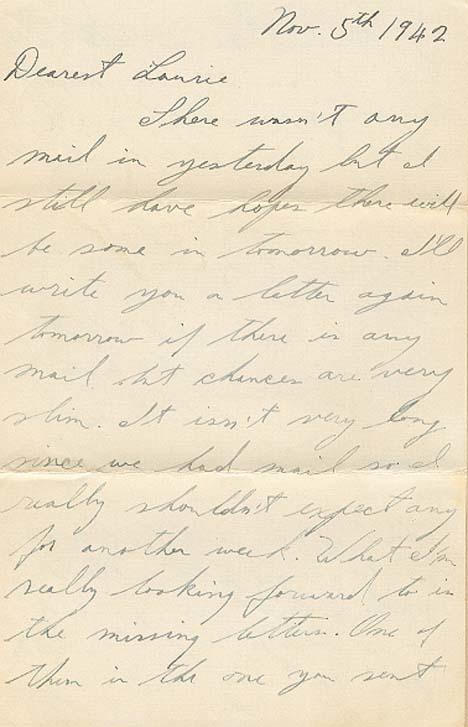 Nov. 5th 1942
Dearest Laurie
There wasn't any
mail in yesterday but I
still have hopes there will
be some in tomorrow. I'll
write you a letter again
tomorrow if there is any
mail but chances are very
slim. It isn't very long
since we had mail so I
really shouldn't expect any
for another week. What I'm
really looking forward to is
the missing letters. One of
them is the one you sent